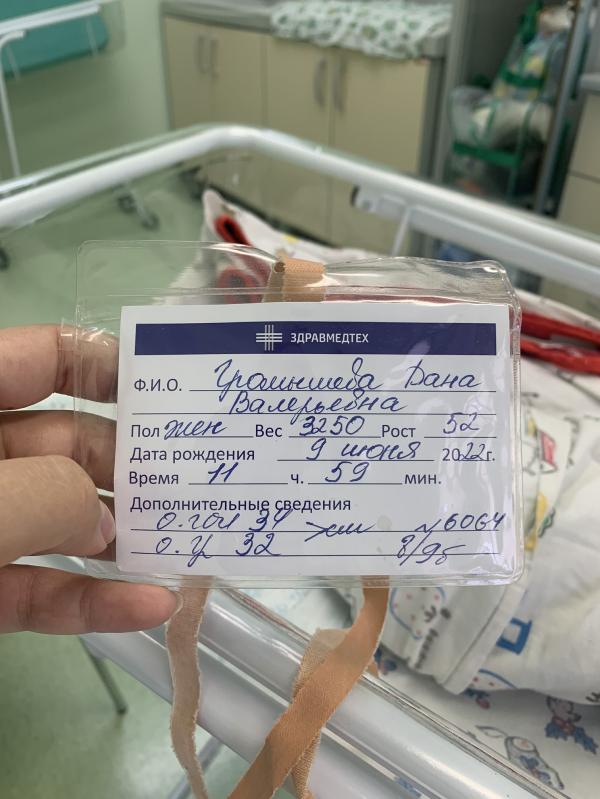 ЗДРАВМЕДТЕХ
Ф.И.О. Громышева Дана
Валерьевна
Пол жен Вес 3250 Рост 52
Дата рождения 9 июня 2022г.
Время 11 ч. 59 мин.
Дополнительные сведения
О.гол 34 см ~6064
О.гр 32 8/9б